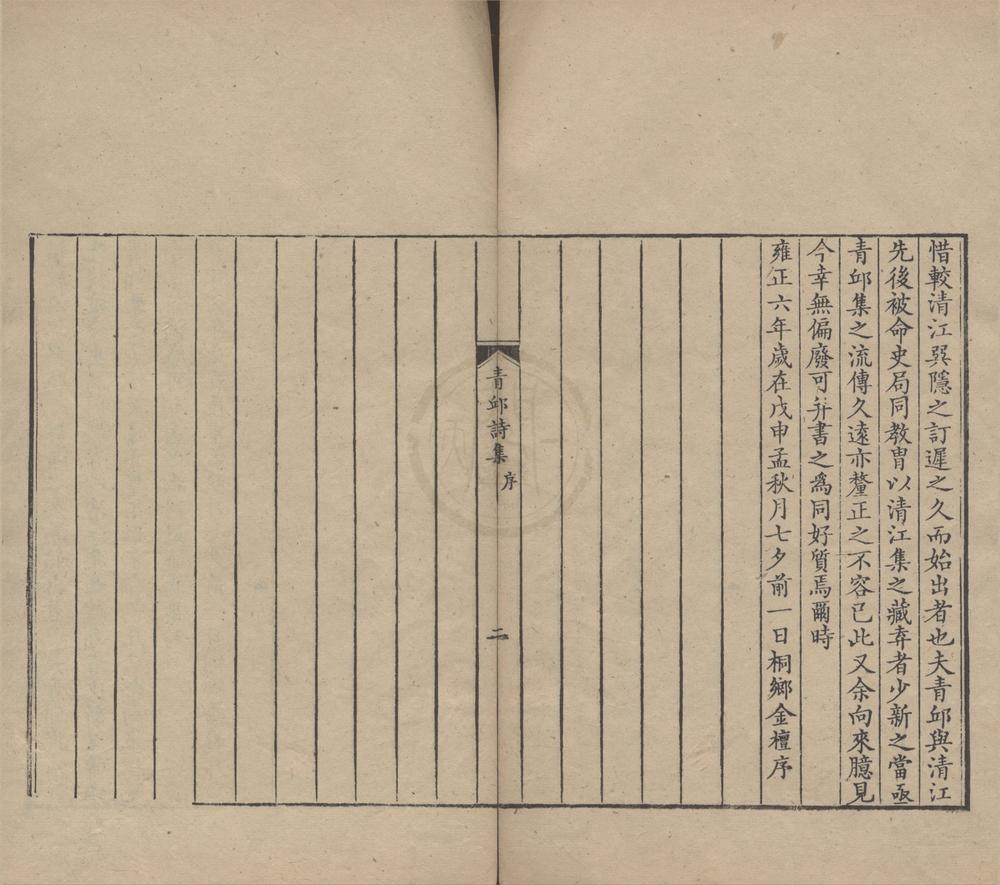 惜較清江巽隱之訂遲之久而始出者也夫青邱與清江
先後被命史局同教胄以清江集之藏弆者少新之當亟
青邱集之流傳久遠亦釐正之不容已此又余向來臆見
今幸無偏廢可幷書之為同好質焉爾時
雍正六年歲在戊申孟秋月七夕前一日桐鄉金檀序
青邱詩集
序
二